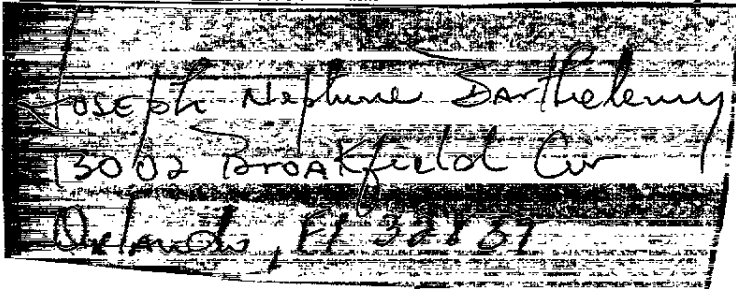 Joseph Nephune Barthelemy
13002 Broakfield Cir
Orlando, Fl 32837